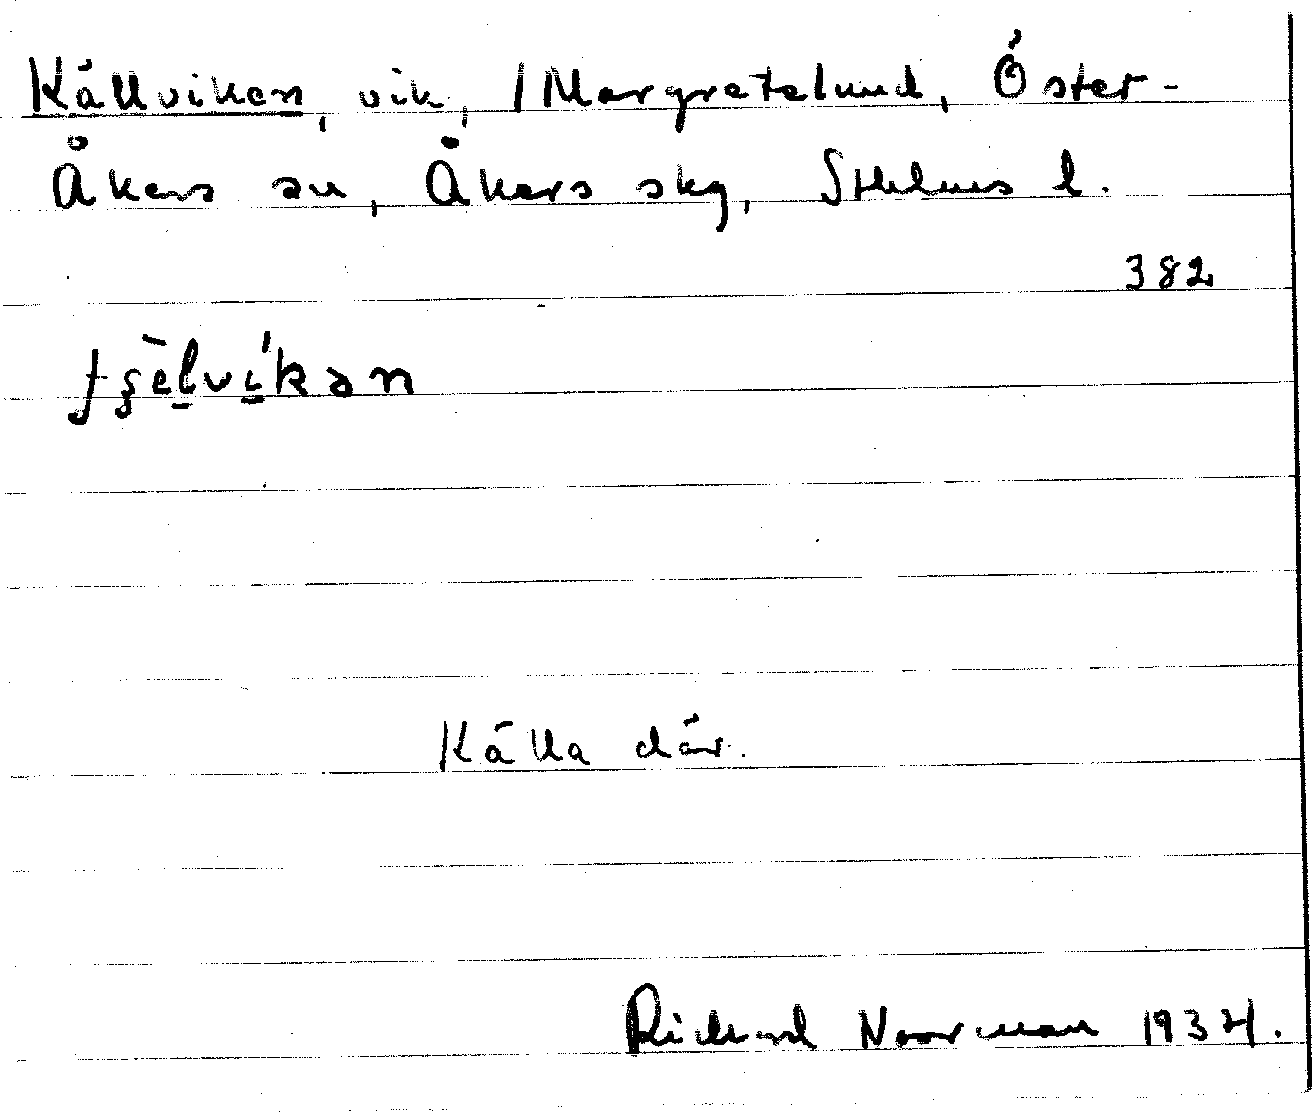 Källviken, vik, /Margretelund, Öster-
Åkers sn, Åkers skg, Sthlms l.
382
Källa där.
Richard Noorman 1934.